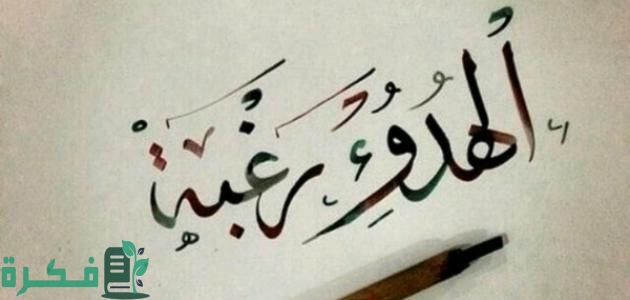 الهُدُوءُ رَغْبَة
فكرة